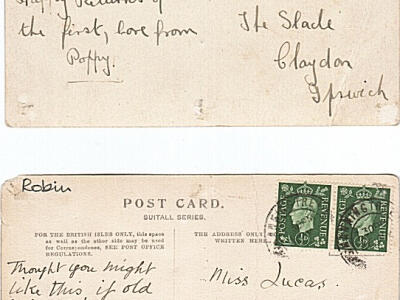 Happy Returns of
the first, love from
Poppy.
The Slade
Claydon
Ipswich
Robin
POST CARD.
SUITALL SERIES.
FOR THE BRITISH ISLES ONLY, this space
as well as the other side may be used
for Correspondence, SEE POST OFFICE
REGULATIONS.
THE ADDRESS ONLY
WRITTEN HERE.
Thought you might
like this if old
Miss Lucas.
POSTAGE REVENUE
POSTAGE REVENUE